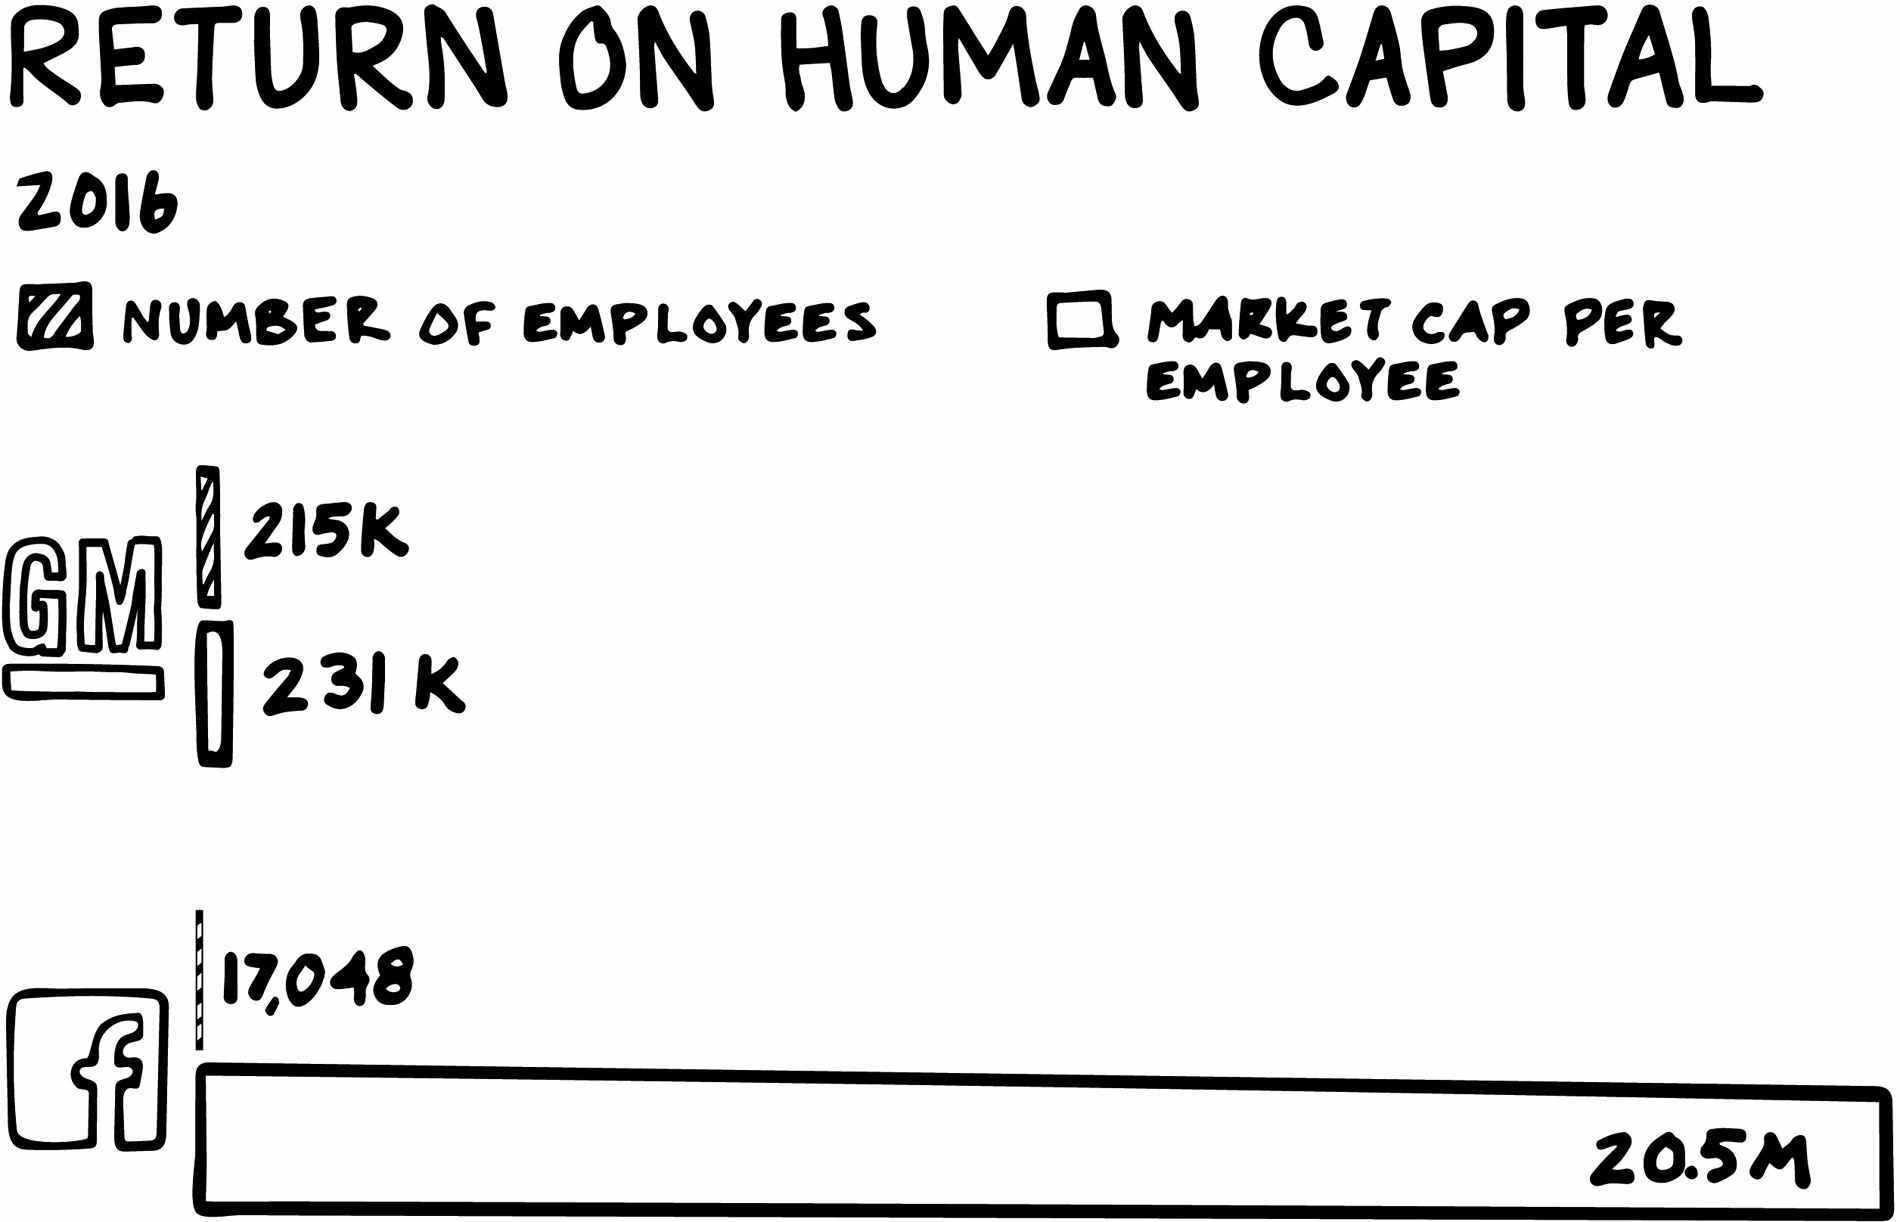 RETURN ON HUMAN CAPITAL
2016
NUMBER OF EMPLOYEES
MARKET CAP PER
EMPLOYEE
215K
GM
231K
17,048
f
20.5M